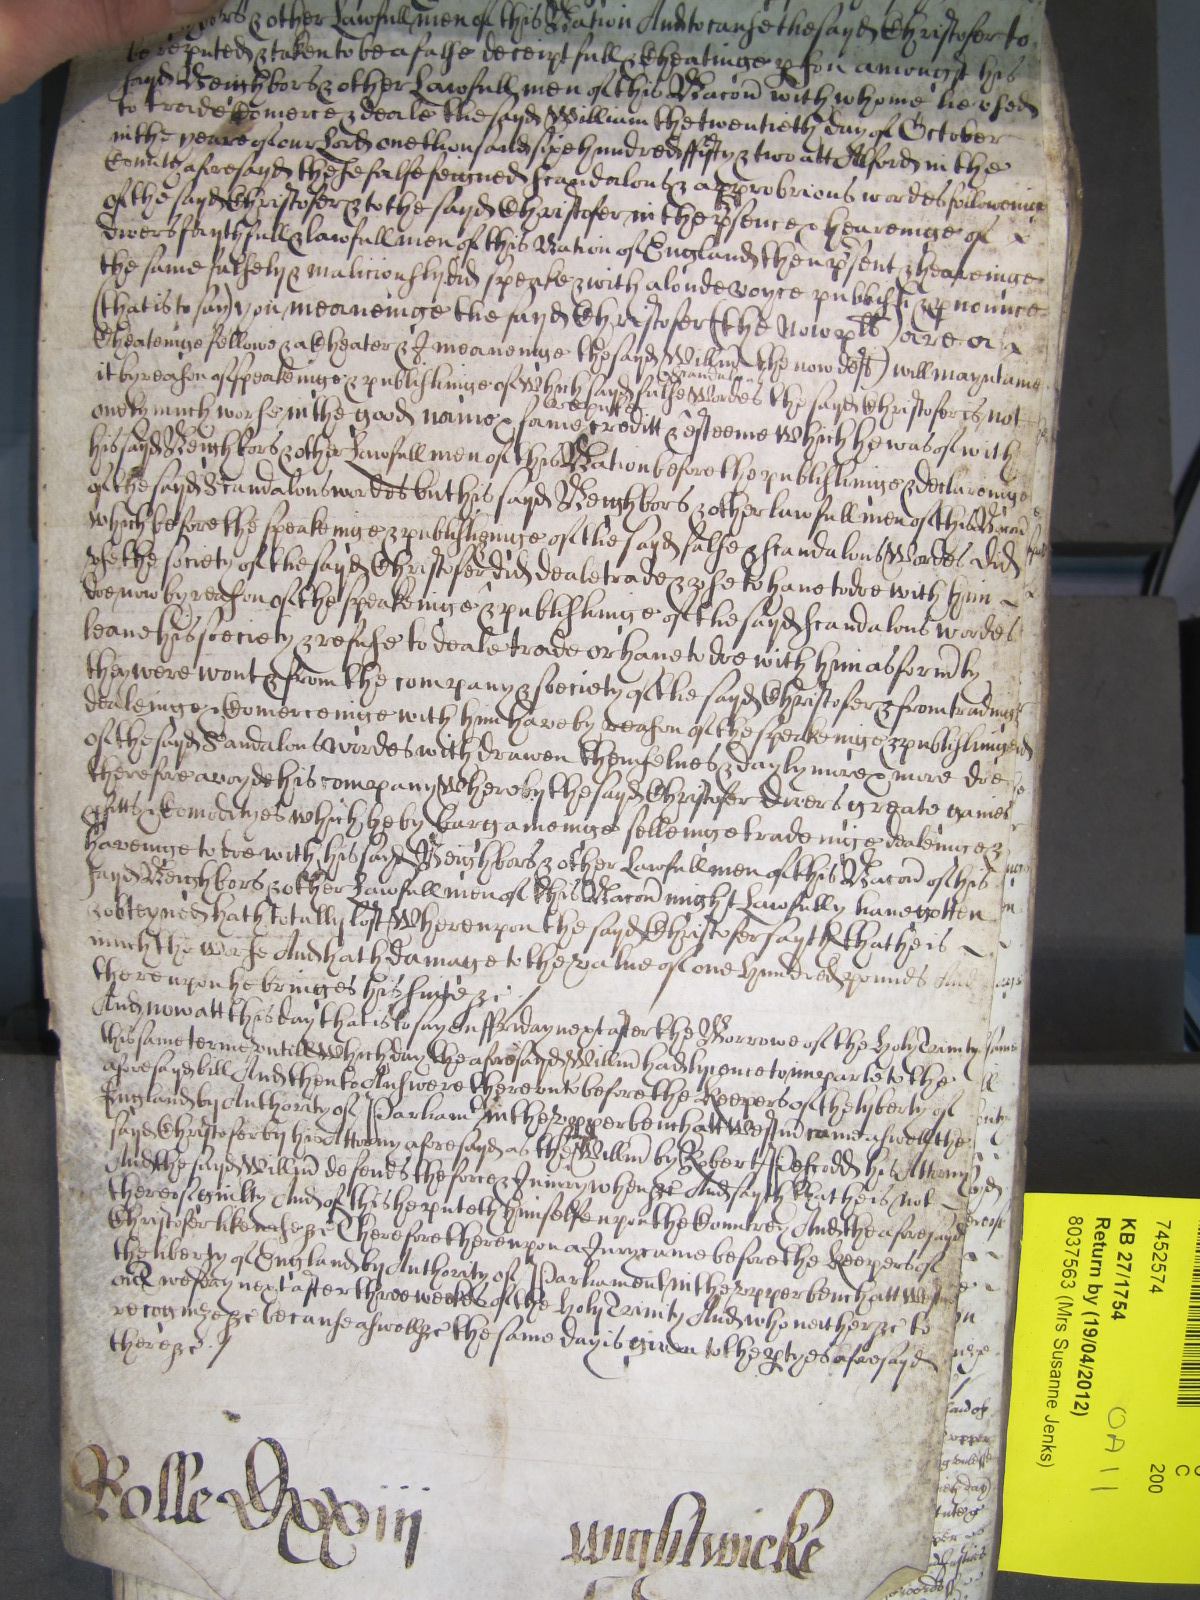 Neighbors & other Lawfull men of this Nation And to cause the sayd Christofer to
be reputed & taken to be a false deceiptfull & Cheatinge pson amongst his
sayd Neighbors & other Lawfull men of this Nacon with whome he used
to trade Comerce & deale the sayd William the twentieth day of October
in the yeare of our Lord one thousand sixe hundred fifty & two att Alford in the
County aforesayd these false feigned scandalous & approbrious wordes followeinge
of the sayd Christofer & to the sayd Christofer in the psence & heareinge of
divers faythfull & lawfull men of this Nation of England then psent & heareinge
the same falsely & maliciously did speake & with a loude voyce publish & pnounce
(that is to say) you meaneinge the sayd Christofer (the now plt) are a
Cheateinge fellowe & a Cheater & I meaneinge the sayd Willm (the now deft) will mayntaine
it by reason of speakeinge & publishinge of which sayd false scandalous wordes the sayd Christofer is not
onely much worse in the good name fame repute creditt & esteeme which he was of with
his sayd Neighbors & other Lawfull men of this Nation before the publishinge & declareinge
of the sayd Scandalous wordes but his sayd Neighbors & other lawfull men of this Nacon
which before the speakeinge & publisheinge of the sayd false & scandalous wordes did
use the society of the sayd Christofer did deale trade & use to have to doe with him
doe now by reason of the speakeinge & publishinge of the sayd scandalous wordes
leave his society & refuse to deale trade or have to doe with him as formly
they were wont & from the company & society of the sayd Christofer & from tradinge
dealeinge & Comerceinge with him have by reason of the speakeinge & publishinge
of the sayd Scandalous wordes withdrawen themselves & dayly more & more doe
therefore avoyde his company Whereby the sayd Christofer divers greate gaines
& Comodityes which he by bargaineinge selleinge tradeinge dealeinge &
haveinge to doe with his sayd Neighbors & other Lawfull men of this Nacon of his
sayd Neighbors & other Lawfull men of this Nacon might Lawfully have gotten
& obteyned hath totally lost Whereupon the sayd Christofer sayth that he is
much the worse And hath damage to the value of one hundred pounds And
thereupon he bringes his suite &c
And now att this day that is to say on ffriday next after the Morrowe of the Holy Trinity
this same terme untill which day the aforesayd Willm had lycence to imparle to the
aforesayd bill And then to Answere thereunto before the Keepers of the liberty of
England by Authority of Parliamt in the upper bench att Westm came aswell the
sayd Christofer by his Attorny aforesayd as the Willm by Robert Pescodd his Attorny
And the sayd Willm defends the force & Iniury when &c And sayth that he is not
thereof guilty And of this he puteth himselfe upon the Countrey And the aforesayd
Christofer likewise &c Therefore thereupon a Jury came before the Keepers of
the liberty of England by Authority of Parliament in the upper bench att Westm
on wesday next after three weekes of the Holy Trinity And who neither &c to
recognize &c because aswell &c the same day is given to the ptyes aforesayd
there &c
Rolle Dxxiij
Wightwicke
7452574
200
KB 27/1754
Return by (19/04/2012)
8037563 (Mrs Susanne Jenks)
OA11